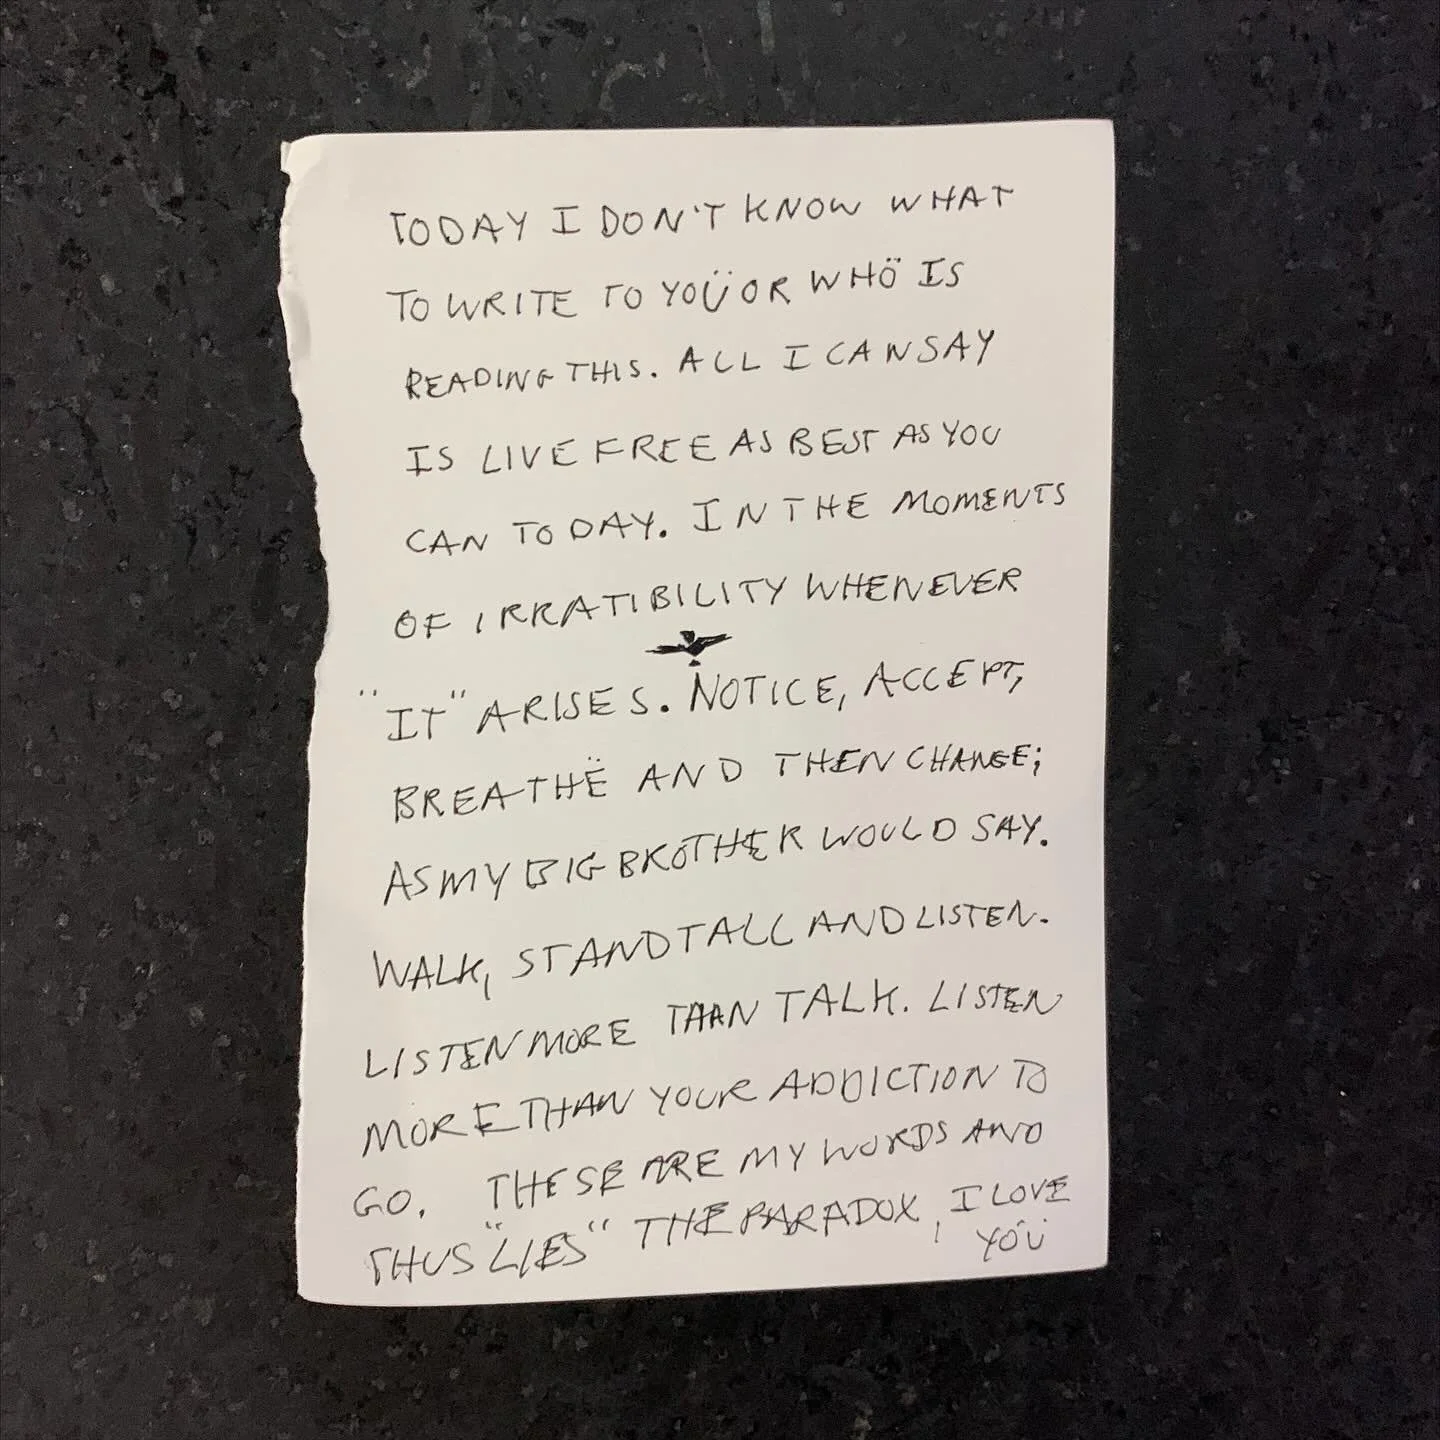 TODAY I DON'T KNOW WHAT
TO WRITE TO YOÜ OR WHÖ IS
READING THIS. ALL I CAN SAY
IS LIVE FREE AS BEST AS YOU
CAN TODAY. IN THE MOMENTS
OF IRRATIBILITY WHENEVER
"IT" ARISES. NOTICE, ACCEPT,
BREATHË AND THEN CHANGE;
AS MY BIG BROTHER WOULD SAY.
WALK, STAND TALL AND LISTEN.
LISTEN MORE THAN TALK. LISTEN
MORE THAN YOUR ADDICTION TO
GO. THESE ARE MY WORDS AND
THUS "LIES" THE PARADOX, I LOVE
YOÜ